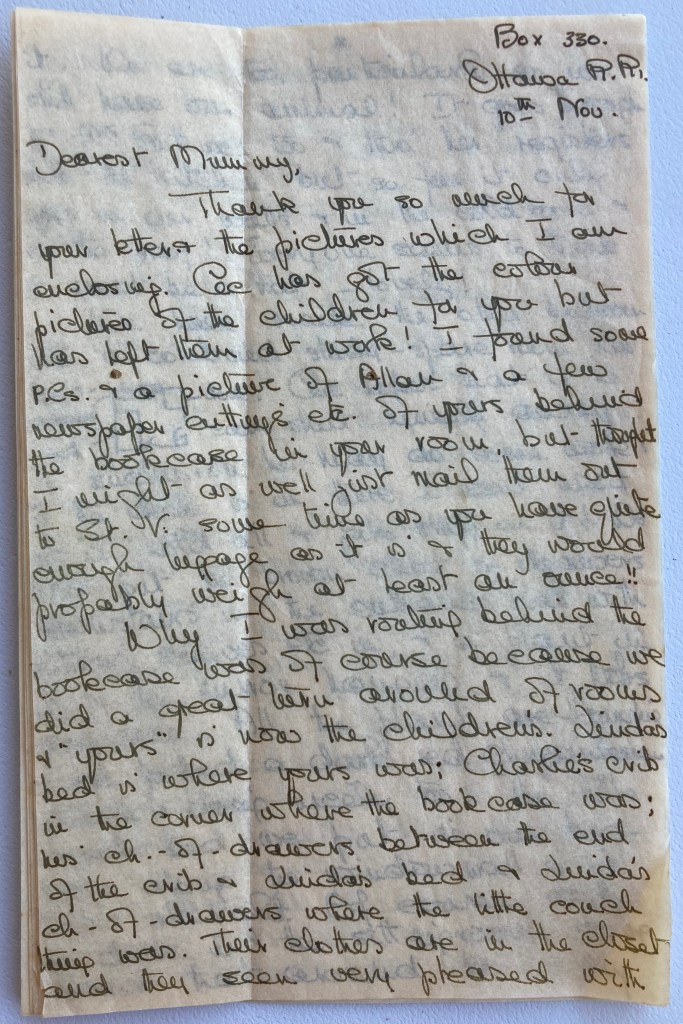 Box 330.
Ottawa R.R.1.
10th Nov.
Dearest Mummy,
Thank you so much for
your letter & the pictures which I am
enclosing. Cec has got the colour
pictures of the children for you but
has left them at work! I found some
P.Cs. & a picture of Allan & a few
newspaper cuttings etc. of yours behind
the bookcase in your room, but thought
I might as well just mail them out
to St. V. some time as you have quite
enough luggage as it is & they would
propably weigh at least an ounce!!
Why I was rooting behind the
bookcase was of course because we
did a great turn around of rooms
& "yours" is now the children's. Linda's
bed is where yours was; Charlie's crib
in the corner where the bookcase was;
his ch.-of-drawers between the end
of the crib & Linda's bed & Linda's
ch-of-drawers where the little couch
thing was. Their clothes are in the closet
and they seem very pleased with